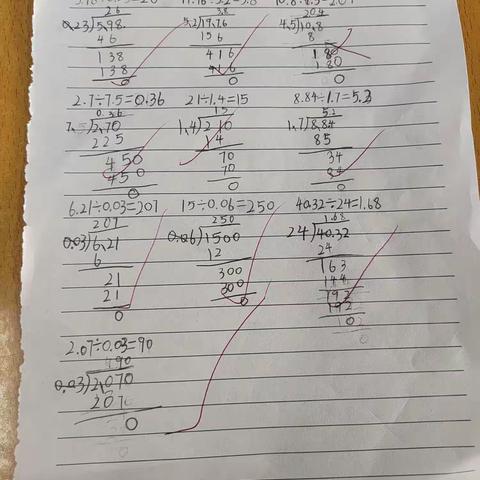 26 3.8 20.4
0.23)5.98 5.2)19.76 4.5)10.8
46 156 8
138 416 180
138 416 180
0 0 0
2.7÷7.5=0.36 21÷1.4=15 8.84÷1.7=5.2
0.36 15 5.2
7.5)2.70 1.4)210 1.7)8.84
225 14 85
450 70 34
450 70 34
0 0 0
6.21÷0.03=207 15÷0.06=250 40.32÷24=1.68
207 250 1.68
0.03)6.21 0.06)1500 24)40.32
6 12 24
21 300 163
21 300 144
0 0 192
192
0
2.07÷0.03=90
90
0.03)2.070
207
0